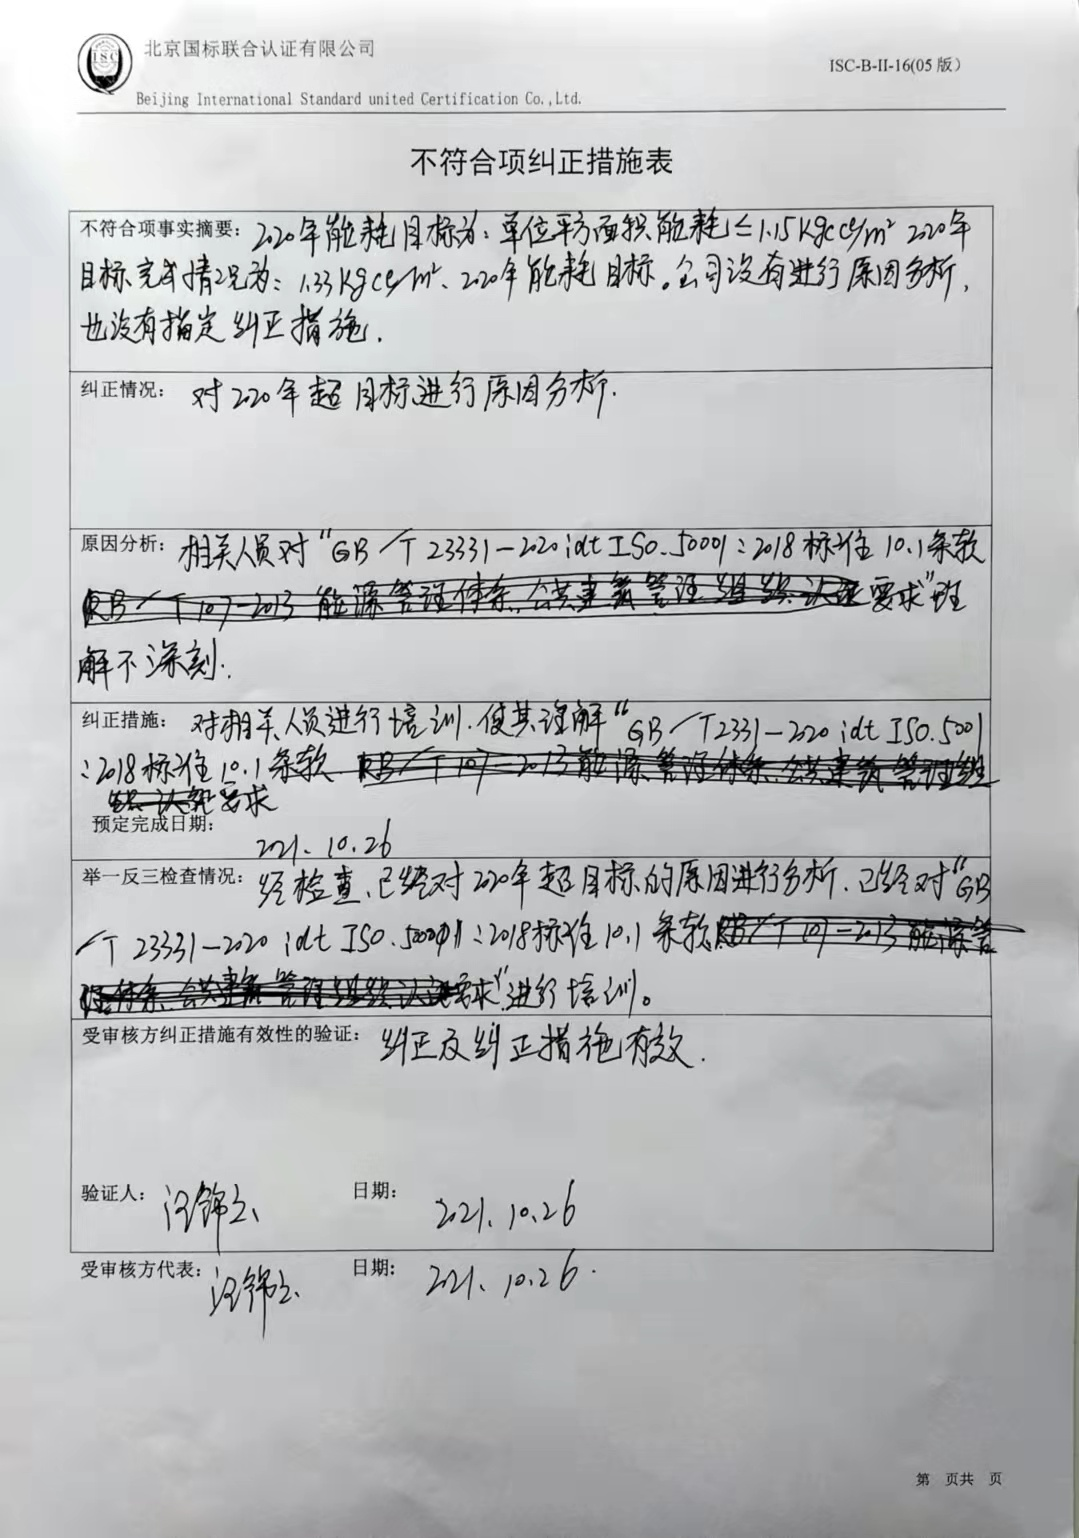 北京国标联合认证有限公司
ISC-B-II-16(05 版)
Beijing International Standard united Certification Co.,Ltd.
不符合项纠正措施表
不符合项事实摘要: 2020年能耗目标为:单位平方面积能耗≤1.15Kgce/m² 2020年
目标完成情况为: 1.33Kgce/m²、2020年能耗目标。公司没有进行原因分析,
也没有指定纠正措施.
纠正情况: 对2020年超目标进行原因分析.
原因分析: 相关人员对"GB/T 23331-2020 idt ISO.50001:2018标准 10.1条款
RB/T 107-2013 能源管理体系 公共建筑管理组织认证要求"理
解不深刻.
纠正措施: 对相关人员进行培训.使其理解"GB/T2331-2020 idt ISO.5001
:2018标准 10.1条款 RB/T 107-2013能源管理体系 公共建筑管理组
织认证要求
预定完成日期:
2021.10.26
举一反三检查情况: 经检查、已经对2020年超目标的原因进行分析.已经对"GB
/T 23331-2020 idt ISO.50001:2018标准10.1条款RB/T 107-2013能源管
理体系 公共建筑管理组织认证要求"进行培训。
受审核方纠正措施有效性的验证: 纠正及纠正措施有效.
验证人: 日期: 2021.10.26
受审核方代表: 日期: 2021.10.26.
第 页共 页